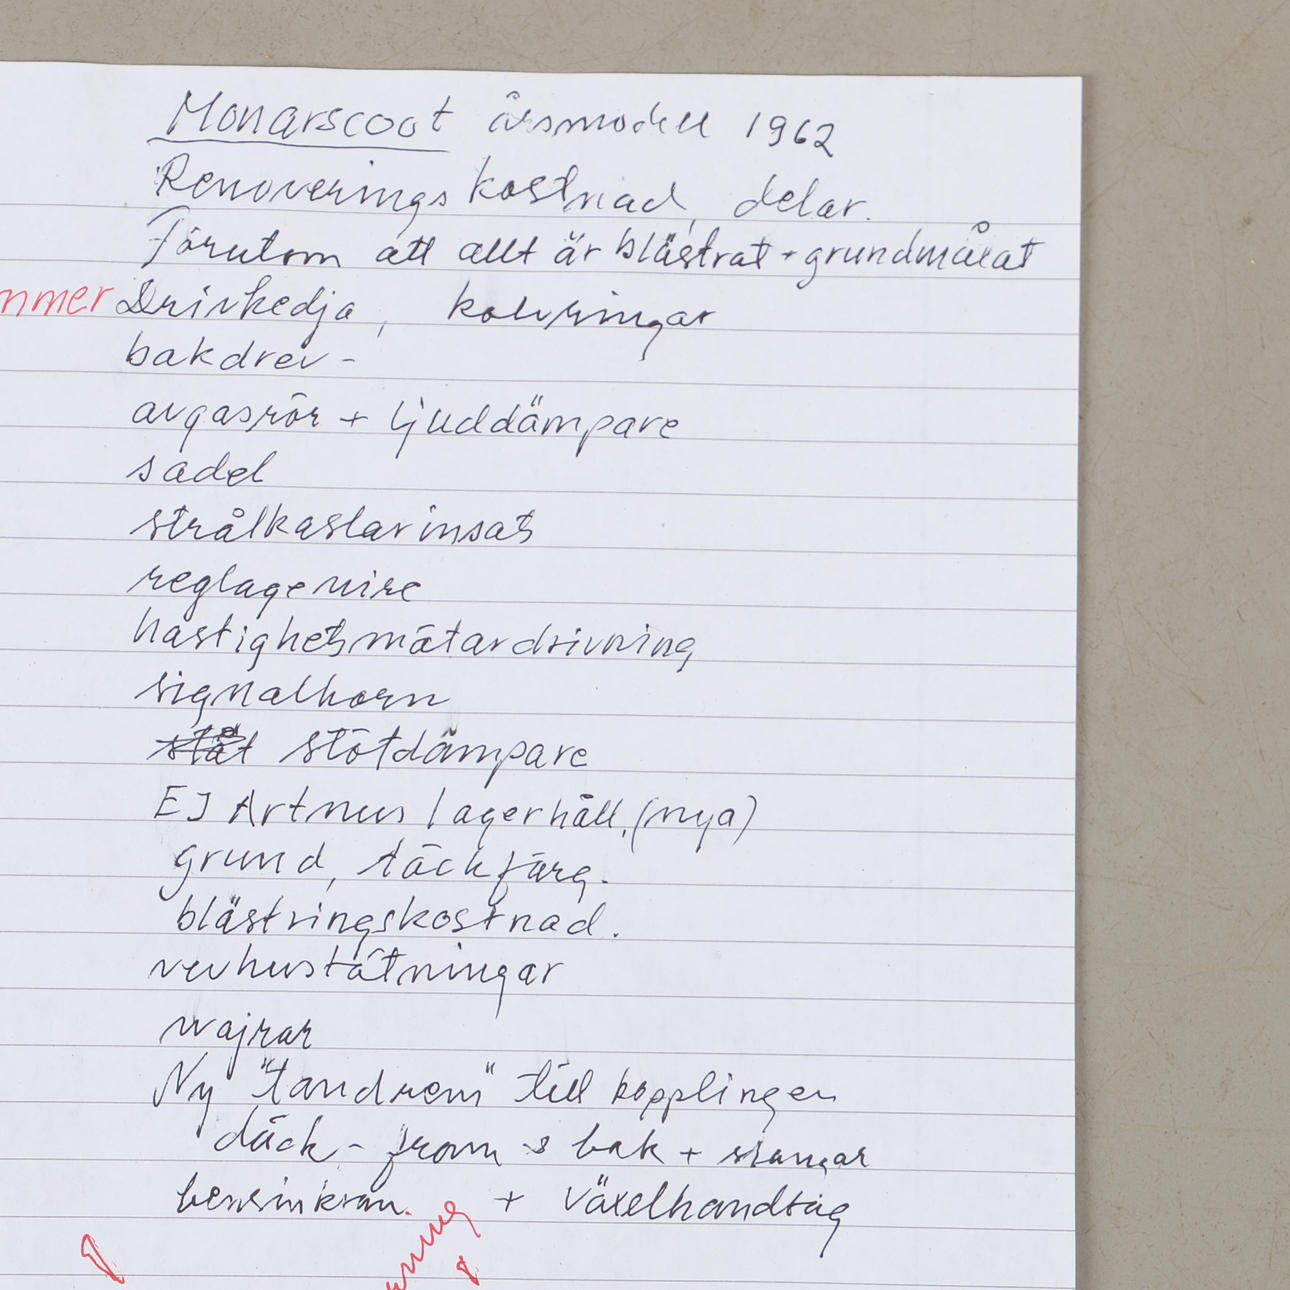 Monarscoot årsmodell 1962
Renoverings kostnad, delar.
Förutom att allt är blästrat + grundmålat
mmer Drivkedja, kolvringar
bakdrev -
avgasrör + ljuddämpare
sadel
strålkastarinsats
reglagewire
hastighetsmätardrivning
signalhorn
stöt stötdämpare
EJ Artnus lagerhåll. (nya)
grund, täckfärg.
blästringskostnad.
vevhustätningar
wajrar
Ny "tandrem" till kopplingen
däck - fram & bak + slangar
bensinkran. + växelhandtag